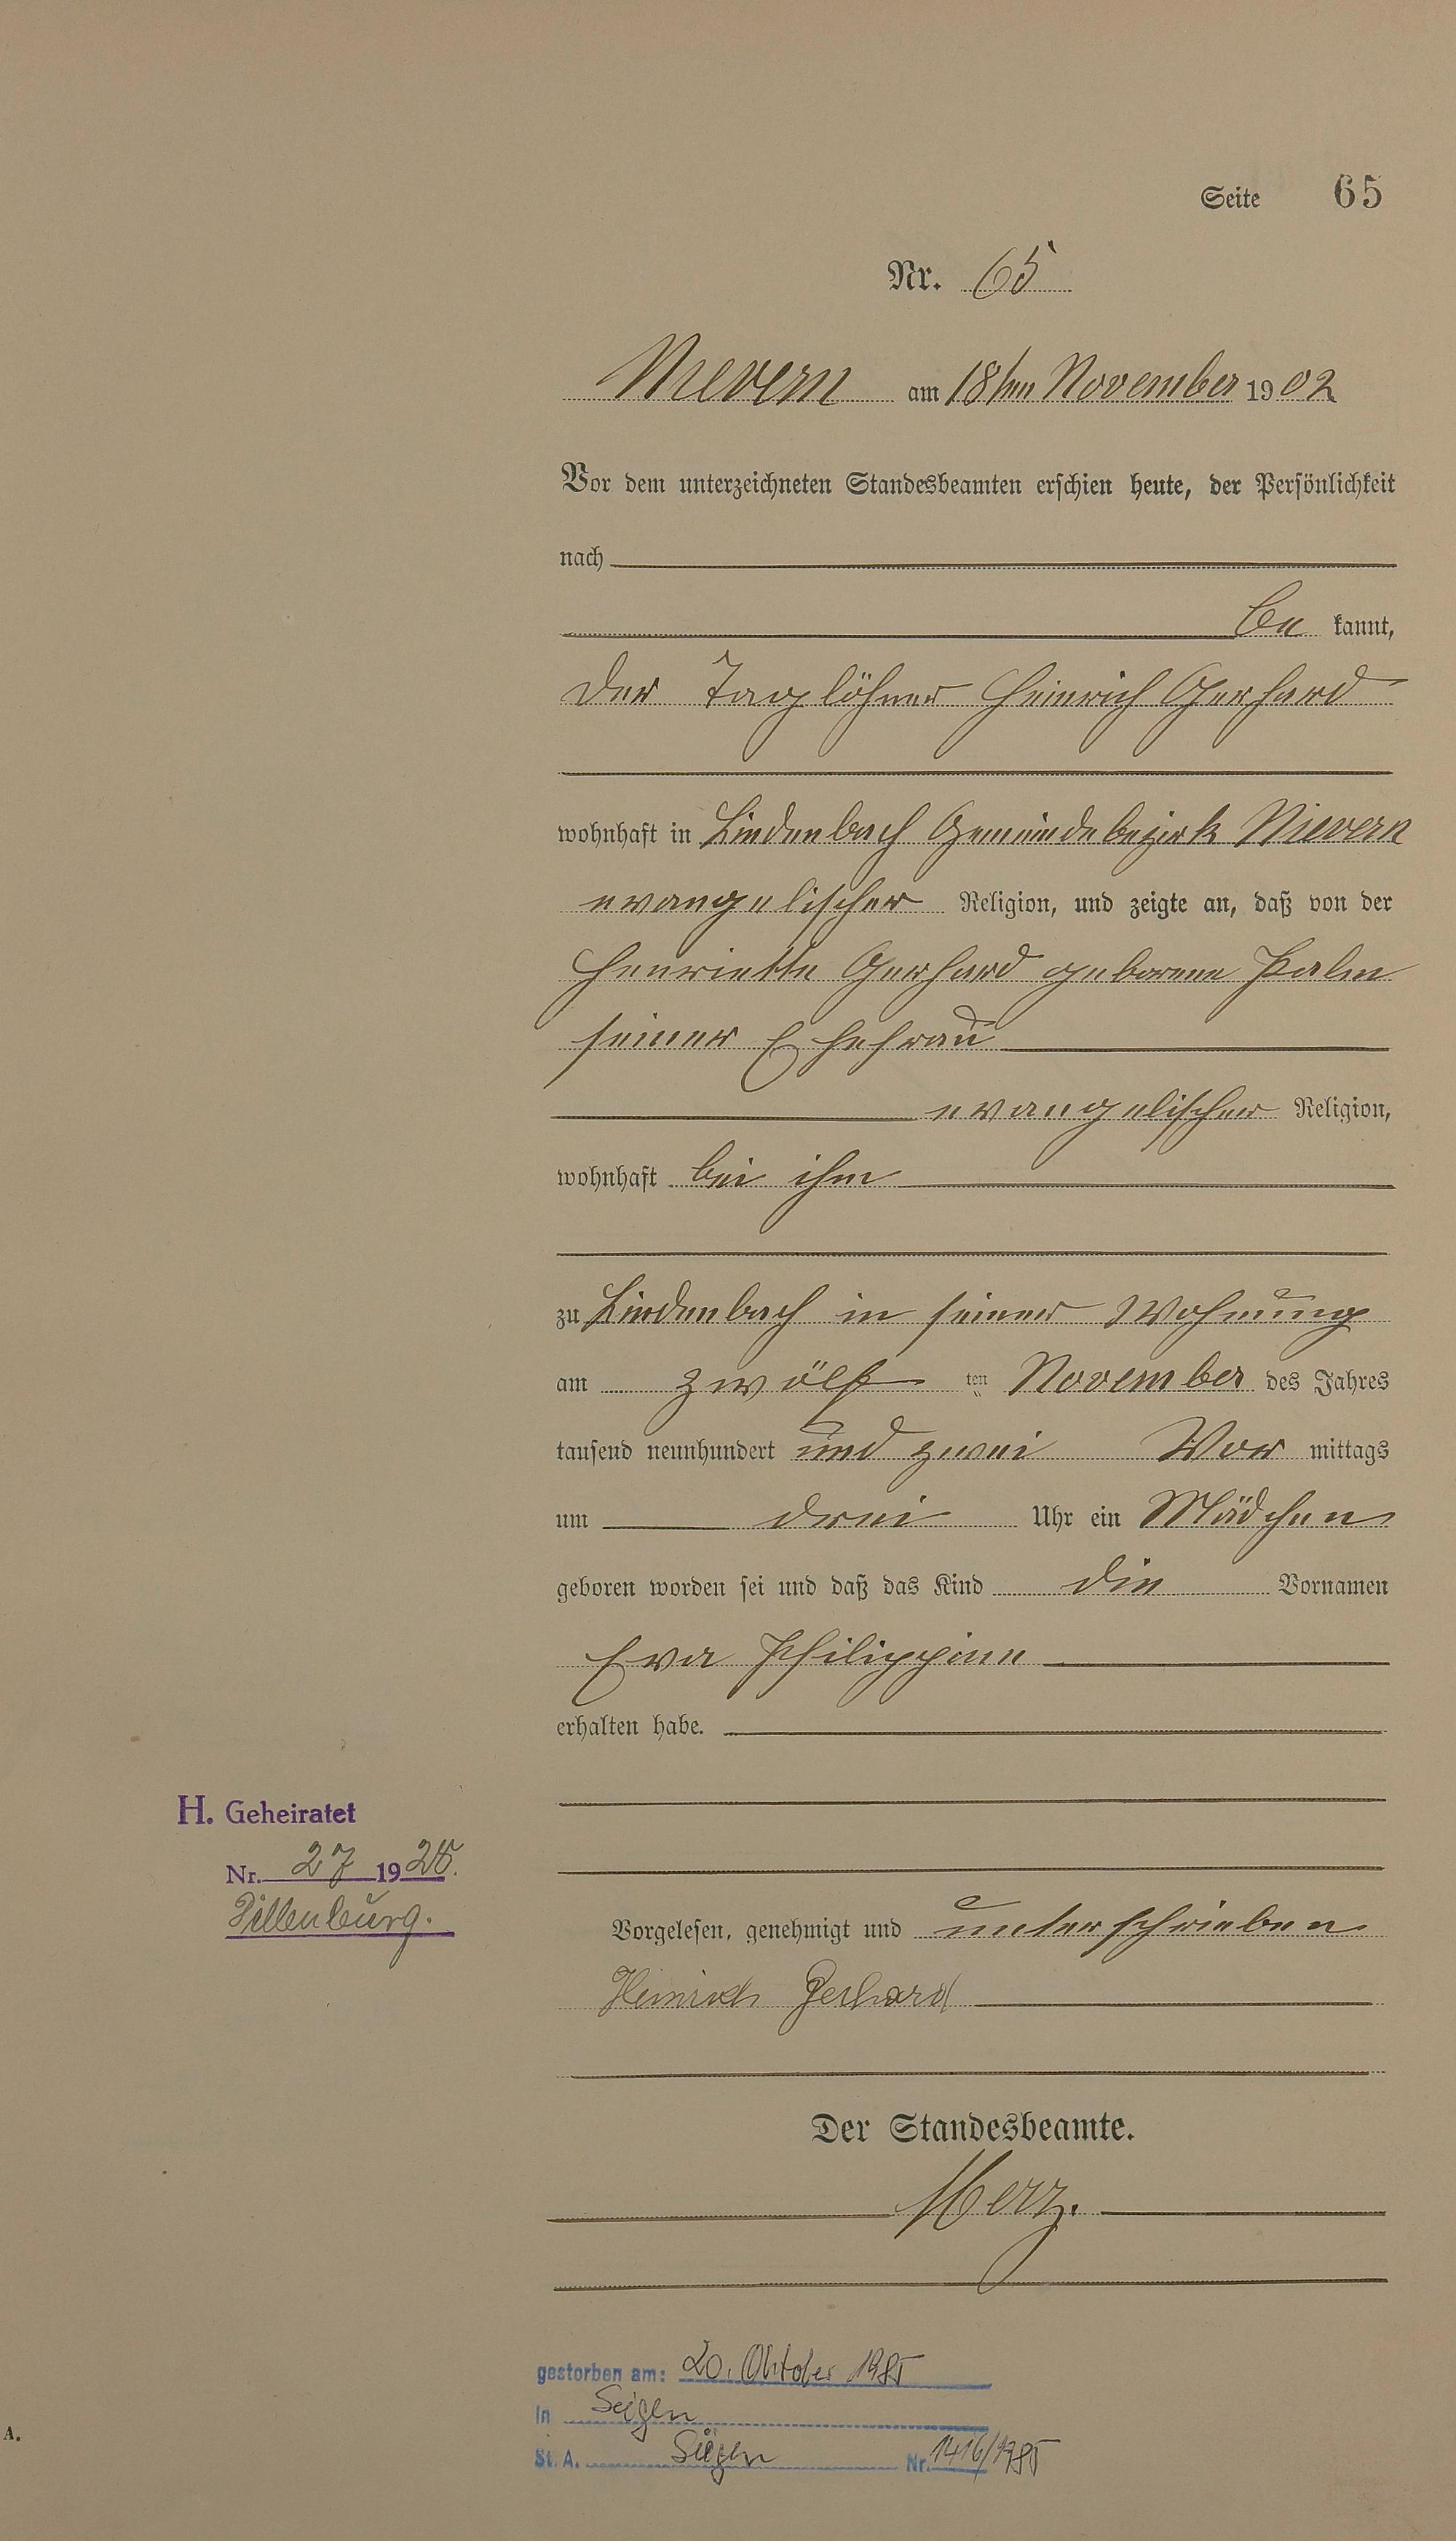 Seite 65
Nr. 65
Nievern am 18ten November 1902
Vor dem unterzeichneten Standesbeamten erschien heute, der Persönlichkeit
nach
be kannt,
der Taglöhner Heinrich Gerhard
wohnhaft in Lindenbach Gemeindebezirk Nievern
evangelischer Religion, und zeigte an, daß von der
Henriette Gerhard geborene Palm
seiner Ehefrau
evangelischer Religion,
wohnhaft bei ihm
zu Lindenbach in seiner Wohnung
am zwölf ten November des Jahres
tausend neunhundert und zwei Vor mittags
um drei Uhr ein Mädchen
geboren worden sei und daß das Kind die Vornamen
Eva Philippine
erhalten habe.
H. Geheiratet
Nr. 27 19
Dillenburg.
Vorgelesen, genehmigt und unterschrieben
Heinrich Gerhard
Der Standesbeamte.
Merz.
gestorben am: 20. Oktober 1985
in Siegen
St. A. Siegen Nr. 1416/1985
A.